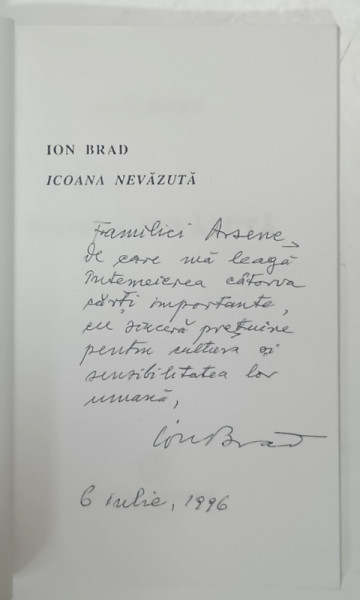 ION BRAD
ICOANA NEVĂZUTĂ
Familiei Arsene,
de care mă leagă
întemeierea câtorva
cărți importante,
cu sinceră prețuire
pentru cultura și
sensibilitatea lor
umană,
Ion Brad
6 iulie, 1996